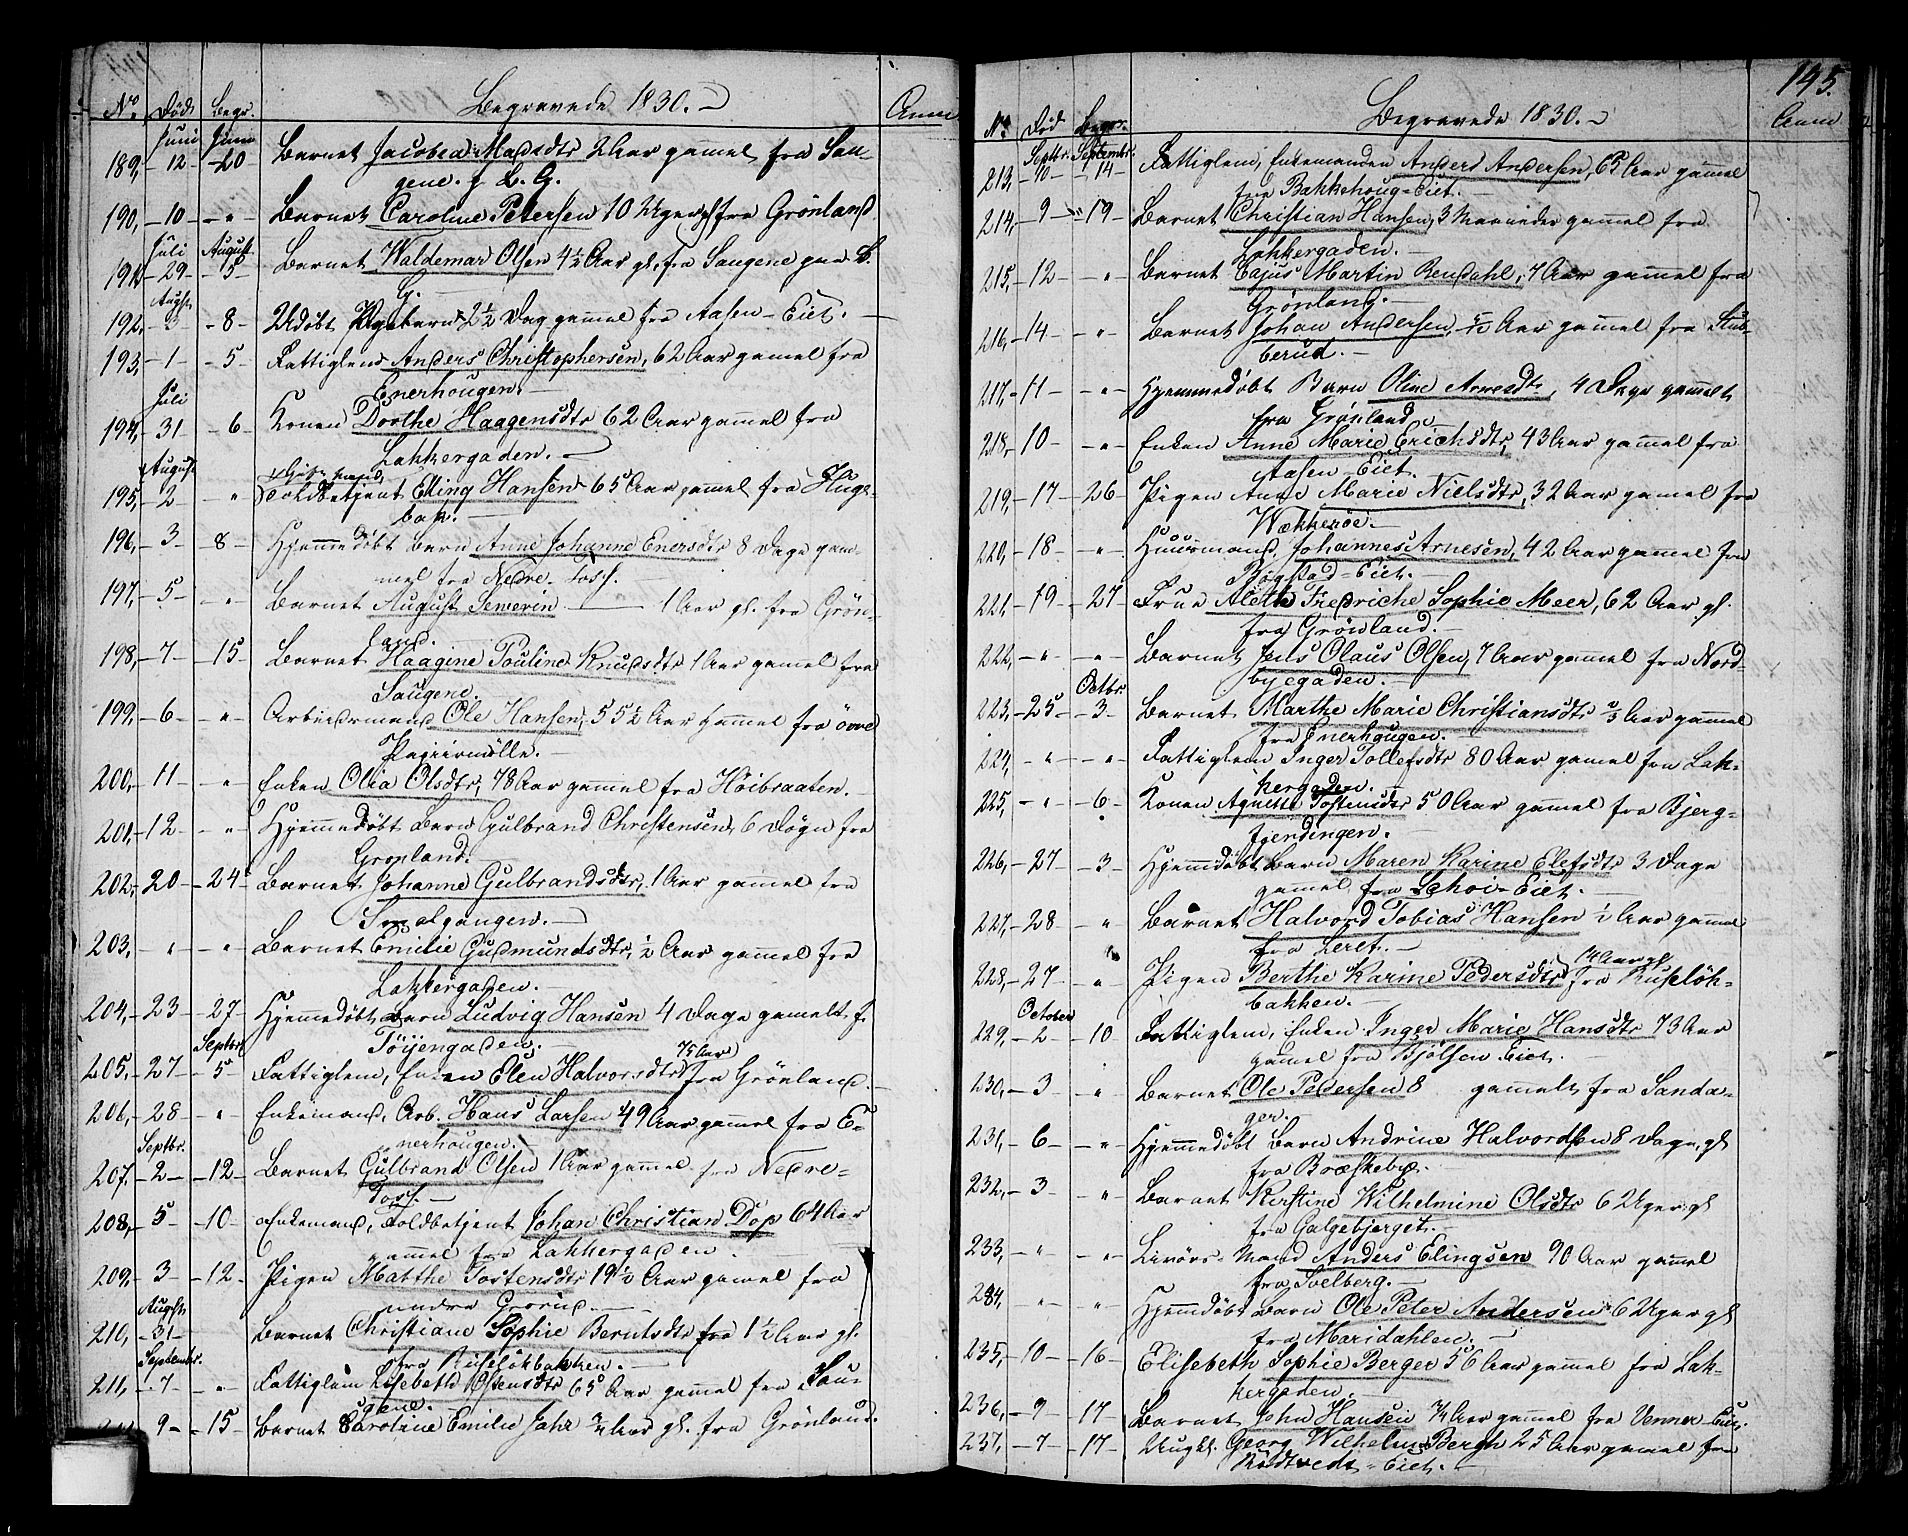 Nº Død Begr. Begravede 1830. Anm
Juni Juni
189, 12 20 Barnet Jacobea Madsdtr 2 Aar gamel fra Sau-
gene. p L. G.
190, 10 " Barnet Caroline Petersen 10 Uger gl fra Grønland
Juli August
191 29 5 Barnet Waldemar Olsen 4½ Aar gl. fra Saugene paa L.
G.
Augst
192, 3 8 Udøbt Pigebarn 2½ Dag gammel fra Aasen-Eiet.
193, 1 5 Fattiglem Anders Christophersen, 62 Aar gamel fra
Enerhougen.
Juli
194, 31 6 Konen Dorthe Haagensdtr 62 Aar gammel fra
Lakkergaden.
August
195, 2 " Toldbetjent Elling Hansen 65 Aar gammel fra
bak.
196, 3 8 Hjemmedøbt barn Anne Johanne Enersdtr 8 Dage gam-
mel fra Nedre-Foss.
197, 5 " Barnet August Sewerin 1 Aar gl. fra Grøn-
land.
198, 7 15 Barnet Haagine Pouline Knudsdtr 1 Aar gammel fra
Saugene.
199, 6 " Arbeidsmand Ole Hansen, 55½ Aar gammel fra øvre
Papiirmølle.
200, 11 " Enken Olia Olsdtr, 78 Aar gammel fra Høibraaten.
201, 12 " Hjemmedøbt Barn Gulbrand Christensen, 6 Døgn fra
Grønland.
202, 20 24 Barnet Johanne Gulbrandsdtr, 1 Aar gammel fra
Smalgangen.
203, " " Barnet Emilie Gudmundsdtr, ½ Aar gammel fra
Lakkergaden.
204, 23 27 Hjemmedøbt Barn Ludvig Hansen 4 Dage gamelt f.
Tøyengaden.
Septbr 75 Aar
205, 27 5 Fattiglem, Enken Elen Halvorsdtr fra Grønland.
206, 28 " Enkemand, Arb. Hans Larsen 49 Aar gammel fra E-
nerhougen.
Septbr.
207, 2 12 Barnet Gulbrand Olsen 1 Aar gammel fra Nedre-
Foss.
208, 5 10 Enkemand, Toldbetjent Johan Christian Dop 64 Aar
gammel fra Lakkergaden.
209, 3 12 Pigen Matthe Tostensdtr 19½ Aar gammel fra
nedre Grorud.
Augst
210, 31 Barnet Christiane Sophie Berntsdtr fra 1½ Aar gl.
fra Ruseløkbakken.
September.
211, 7 " Fattiglem Lisebeth Ostensdtr 65 Aar gammel fra Sau-
gene.
9 15 Barnet Caroline Emilie Jahr ¾ Aar gl. fra Grønland.
145.
Nº Død Begr. Begravede 1830. Anm
Septbr. Septembr.
213, 10 14 Fattiglem, Enkemanden Anders Andersen, 65 Aar gammel
fra Bakkehoug-Eiet.
214, 9 19 Barnet Christian Hansen, 3 Maaneder gammel fra
Lakkergaden.
215, 12 " Barnet Cajus Martin Rendahl, 7 Aar gammel fra
Grønland.
216, 14 " Barnet Johan Andersen, Aar gammel fra Stub-
berud.
217, 11 " Hjemmedøbt Barn Oline Arnesdtr, 4 Dage gammelt
fra Grønland
218, 10 " Enken Anne Marie Erichsdtr, 43 Aar gammel fra
Aasen-Eiet.
219, 17 26 Pigen Anne Marie Nielsdtr, 32 Aar gammel fra
Wækkerøe.
220, 18 " Huusmand, Johannes Arnesen, 42 Aar gammel fra
Bogstad-Eiet.
221, 19 27 Frue Alethe Fredriche Sophie Meer, 62 Aar gl.
fra Grønland.
222, " " Barnet Jens Olaus Olsen, 7 Aar gammel fra Nord-
byegaden.
Octbr.
223, 25 3 Barnet Marthe Marie Christiansdtr ⅔ Aar gammel
fra Enerhougen.
224, " " Fattiglem Inger Tollefsdtr 80 Aar gammel fra Lak-
kergaden.
225, " 6 Konen Agnethe Tostensdtr 50 Aar gammel fra Bjerg-
fjerdingen.
226, 27 3 Hjemmedøbt Barn Maren Karine Elefsdtr 3 Dage
gamel fra Schøi-Eiet.
227, 28 " Barnet Halvord Tobias Hansen ½ Aar gammel
fra Leret.
14 Aar gl
228, 27 " Pigen Berthe Karine Pedersdtr fra Ruseløk-
bakken.
October
229, 2 10 Fattiglem, Enken Inger Marie Hansdtr 73 Aar
gammel fra Bjølsen Eiet.
230, 3 " Barnet Ole Pedersen 8 gammelt fra Sanda-
ger.
231, 6 " Hjemmedøbt Barn Andrine Halvordsen 8 Dage gl
fra Bræskeby.
232, 3 " Barnet Kirstine Wilhelmine Olsdtr 6 Uger gl
fra Galgebjerget.
233, " " Livørs-Mand Anders Elingsen 90 Aar gammel
fra Svelberg.
234, " " Hjemmedøbt Barn Ole Peter Andersen 6 Uger gl
fra Maridahlen.
235, 10 16 Elisebeth Sophie Berger 56 Aar gammel fra Lak-
kergaden.
236, 9 17 Barnet John Hansen ¾ Aar gammel fra Venner-Eiet.
237, 7 17 Ungkl. Georg Wilhelm Bergh 25 Aar gammel fra
Rødtvedt-Eiet.